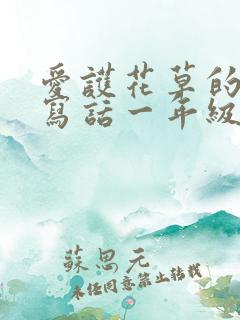 愛護花草的
寫話一年級
蘇思元
未經同意禁止轉載